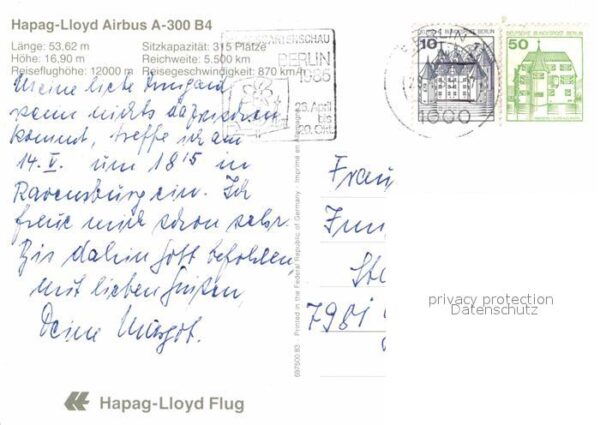 Hapag-Lloyd Airbus A-300 B4
Länge: 53,62 m
Höhe: 16,90 m
Reiseflughöhe: 12000 m
Sitzkapazität: 315 Plätze
Reichweite: 5.500 km
Reisegeschwindigkeit: 870 km/h
Meine liebe Irmgard
wenn nichts dazwischen
kommt, treffe ich am
14.V. um 18¹⁵ in
Ravensburg ein. Ich
freue mich schon sehr.
Bis dahin Gott befohlen,
mit lieben Grüßen,
Deine Margot.
Hapag-Lloyd Flug
697500/83 Printed in the Federal Republic of Germany Imprimé en Allemagne
GARTENSCHAU
BERLIN
1985
26. April
bis
20. Okt.
1000
DEUTSCHE BUNDESPOST BERLIN
10
DEUTSCHE BUNDESPOST BERLIN
50
Frau
Ste
7981
privacy protection
Datenschutz